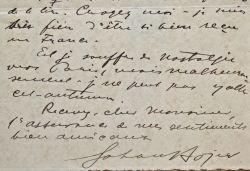 Croyez moi - je suis
très fier d'être si bien reçu
en France.
Et je souffre de nostalgie
vers Paris, mais malheureu-
sement - je ne peux pas y aller
cet automne.
Recevez, cher Monsieur,
l'assurance de mes sentiments
bien amicaux
Johan Bojer